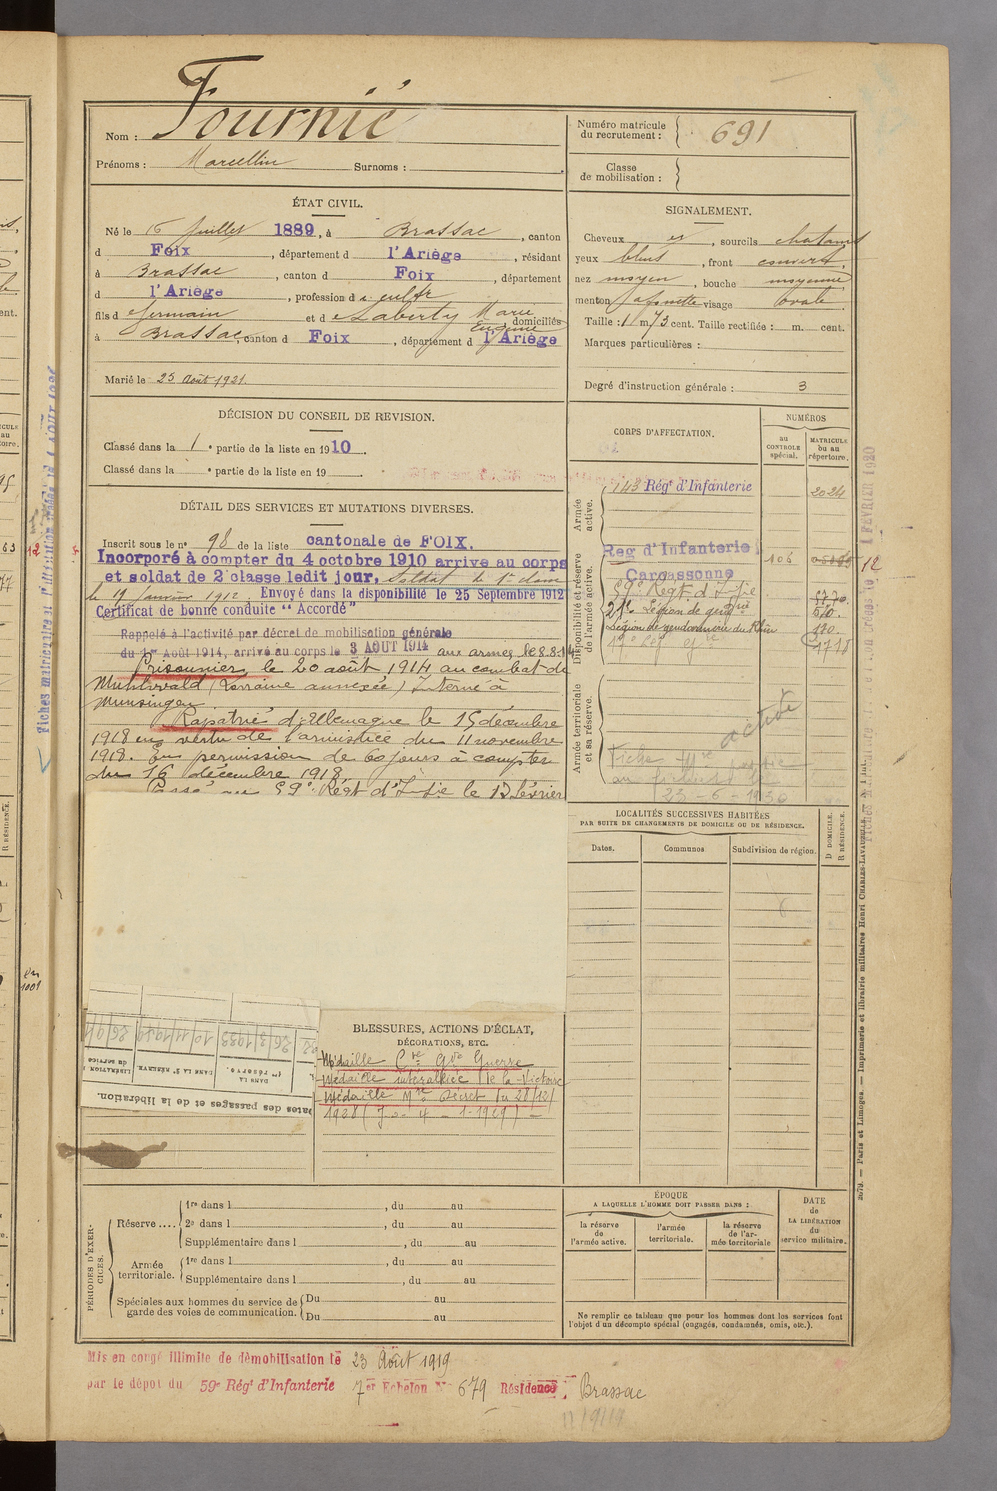 Fournié
Nom :
Prénoms : Marcellin Surnoms :
Numéro matricule du recrutement : 691
Classe de mobilisation :
ÉTAT CIVIL.
Né le 6 Juillet 1889, à Brassac, canton
d Foix, département d l'Ariège, résidant
à Brassac, canton d Foix, département
d l'Ariège, profession d
fils d Germain et d Laberty Marie Eugénie, domiciliés
à Brassac, canton d Foix, département d l'Ariège
Marié le 23 Août 1921.
SIGNALEMENT.
Cheveux et, sourcils chatains
yeux bleus, front couvert,
nez moyen, bouche moyenne
menton à fossette visage ovale
Taille : 1 m 73 cent. Taille rectifiée : m. cent.
Marques particulières :
Degré d'instruction générale : 3
DÉCISION DU CONSEIL DE REVISION.
Classé dans la 1e partie de la liste en 1910.
Classé dans la e partie de la liste en 19
DÉTAIL DES SERVICES ET MUTATIONS DIVERSES.
Inscrit sous le no 98 de la liste cantonale de FOIX.
Incorporé à compter du 4 octobre 1910 arrivé au corps
et soldat de 2e classe ledit jour, Soldat de 1re classe
le 19 Janvier 1912. Envoyé dans la disponibilité le 25 Septembre 1912
Certificat de bonne conduite "Accordé"
Rappelé à l'activité par décret de mobilisation générale
du 1er Août 1914, arrivé au corps le 3 AOUT 1914 aux armées le 8-8-14
Prisonnier le 20 août 1914 au combat de
Muhlwald (Lorraine annexée) Interné à
Munsingen
Rapatrié d'Allemagne le 15 décembre
1918 en vertu de l'armistice du 11 novembre
1918. En permission de 60 jours à compter
du 16 décembre 1918
Passé au 59e Régt d'Inf-ie le 13 février
CORPS D'AFFECTATION.
NUMÉROS
au CONTROLE spécial.
MATRICULE ou au répertoire.
Armée active.
143 Régt d'Infanterie 2024
Disponibilité et réserve de l'armée active.
Reg d'Infanterie 106
Carcassonne
12
59e Régt d'Inf-ie
Légion de gendarmerie du Rhin 190
1718
Armée territoriale et sa réserve.
active
Fiche
23-6-1930
LOCALITÉS SUCCESSIVES HABITÉES
PAR SUITE DE CHANGEMENTS DE DOMICILE OU DE RÉSIDENCE.
Dates.
Communes
Subdivision de région.
D DOMICILE.
R RÉSIDENCE.
26/3/1933
10/11/1939
DANS LA 1re RÉSERVE.
DANS LA 2e RÉSERVE
LIBÉRATION du service
Dates des passages et de la libération.
BLESSURES, ACTIONS D'ÉCLAT,
DÉCORATIONS, ETC.
Médaille Cve Gde Guerre
Médaille interalliée de la Victoire
Médaille Mre Décret du 28/12/
1928 (J.o. 4-1-1929)
PÉRIODES D'EXERCICES.
Réserve.... 1re dans l , du au
2e dans l , du au
Supplémentaire dans l , du au
Armée territoriale. 1re dans l , du au
Supplémentaire dans l , du au
Spéciales aux hommes du service de garde des voies de communication. Du au
Du au
ÉPOQUE
A LAQUELLE L'HOMME DOIT PASSER DANS :
la réserve de l'armée active.
l'armée territoriale.
la réserve de l'armée territoriale
DATE de LA LIBÉRATION du service militaire.
Ne remplir ce tableau que pour les hommes dont les services font
l'objet d'un décompte spécial (engagés, condamnés, omis, etc.).
2679. — Paris et Limoges. — Imprimerie et librairie militaires Henri CHARLES-LAVAUZELLE.
Mis en congé illimité de démobilisation le 23 Août 1919
par le dépôt du 59e Régt d'Infanterie 7er Echelon No 679 Résidence : Brassac